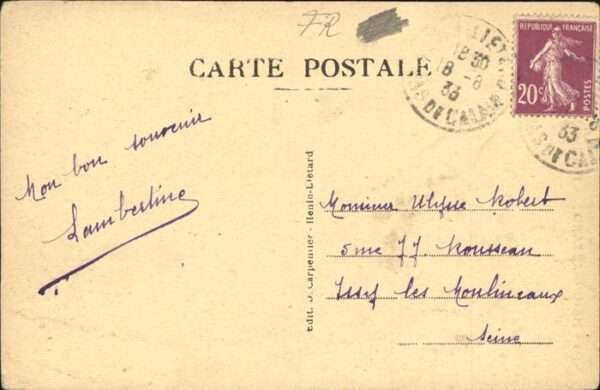 FR
CARTE POSTALE
RÉPUBLIQUE FRANÇAISE
20c
POSTES
18 30
8 - 8
33
PAS DE CALAIS
33
Mon bon souvenir
Lambertine
Edit. J. Carpentier - Henin-Liétard
Monsieur Ulysse Robert
5 rue J J. Rousseau
Issy les Moulineaux
Seine